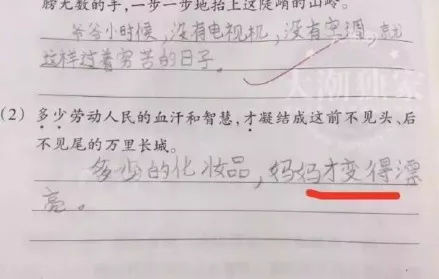 膀无数的手,一步一步地抬上这陡峭的山岭。
爷爷小时候,没有电视机,没有空调,就
这样过着穷苦的日子。
(2) 多少劳动人民的血汗和智慧,才凝结成这前不见头、后
不见尾的万里长城。
多少的化妆品,妈妈才变得漂
亮。